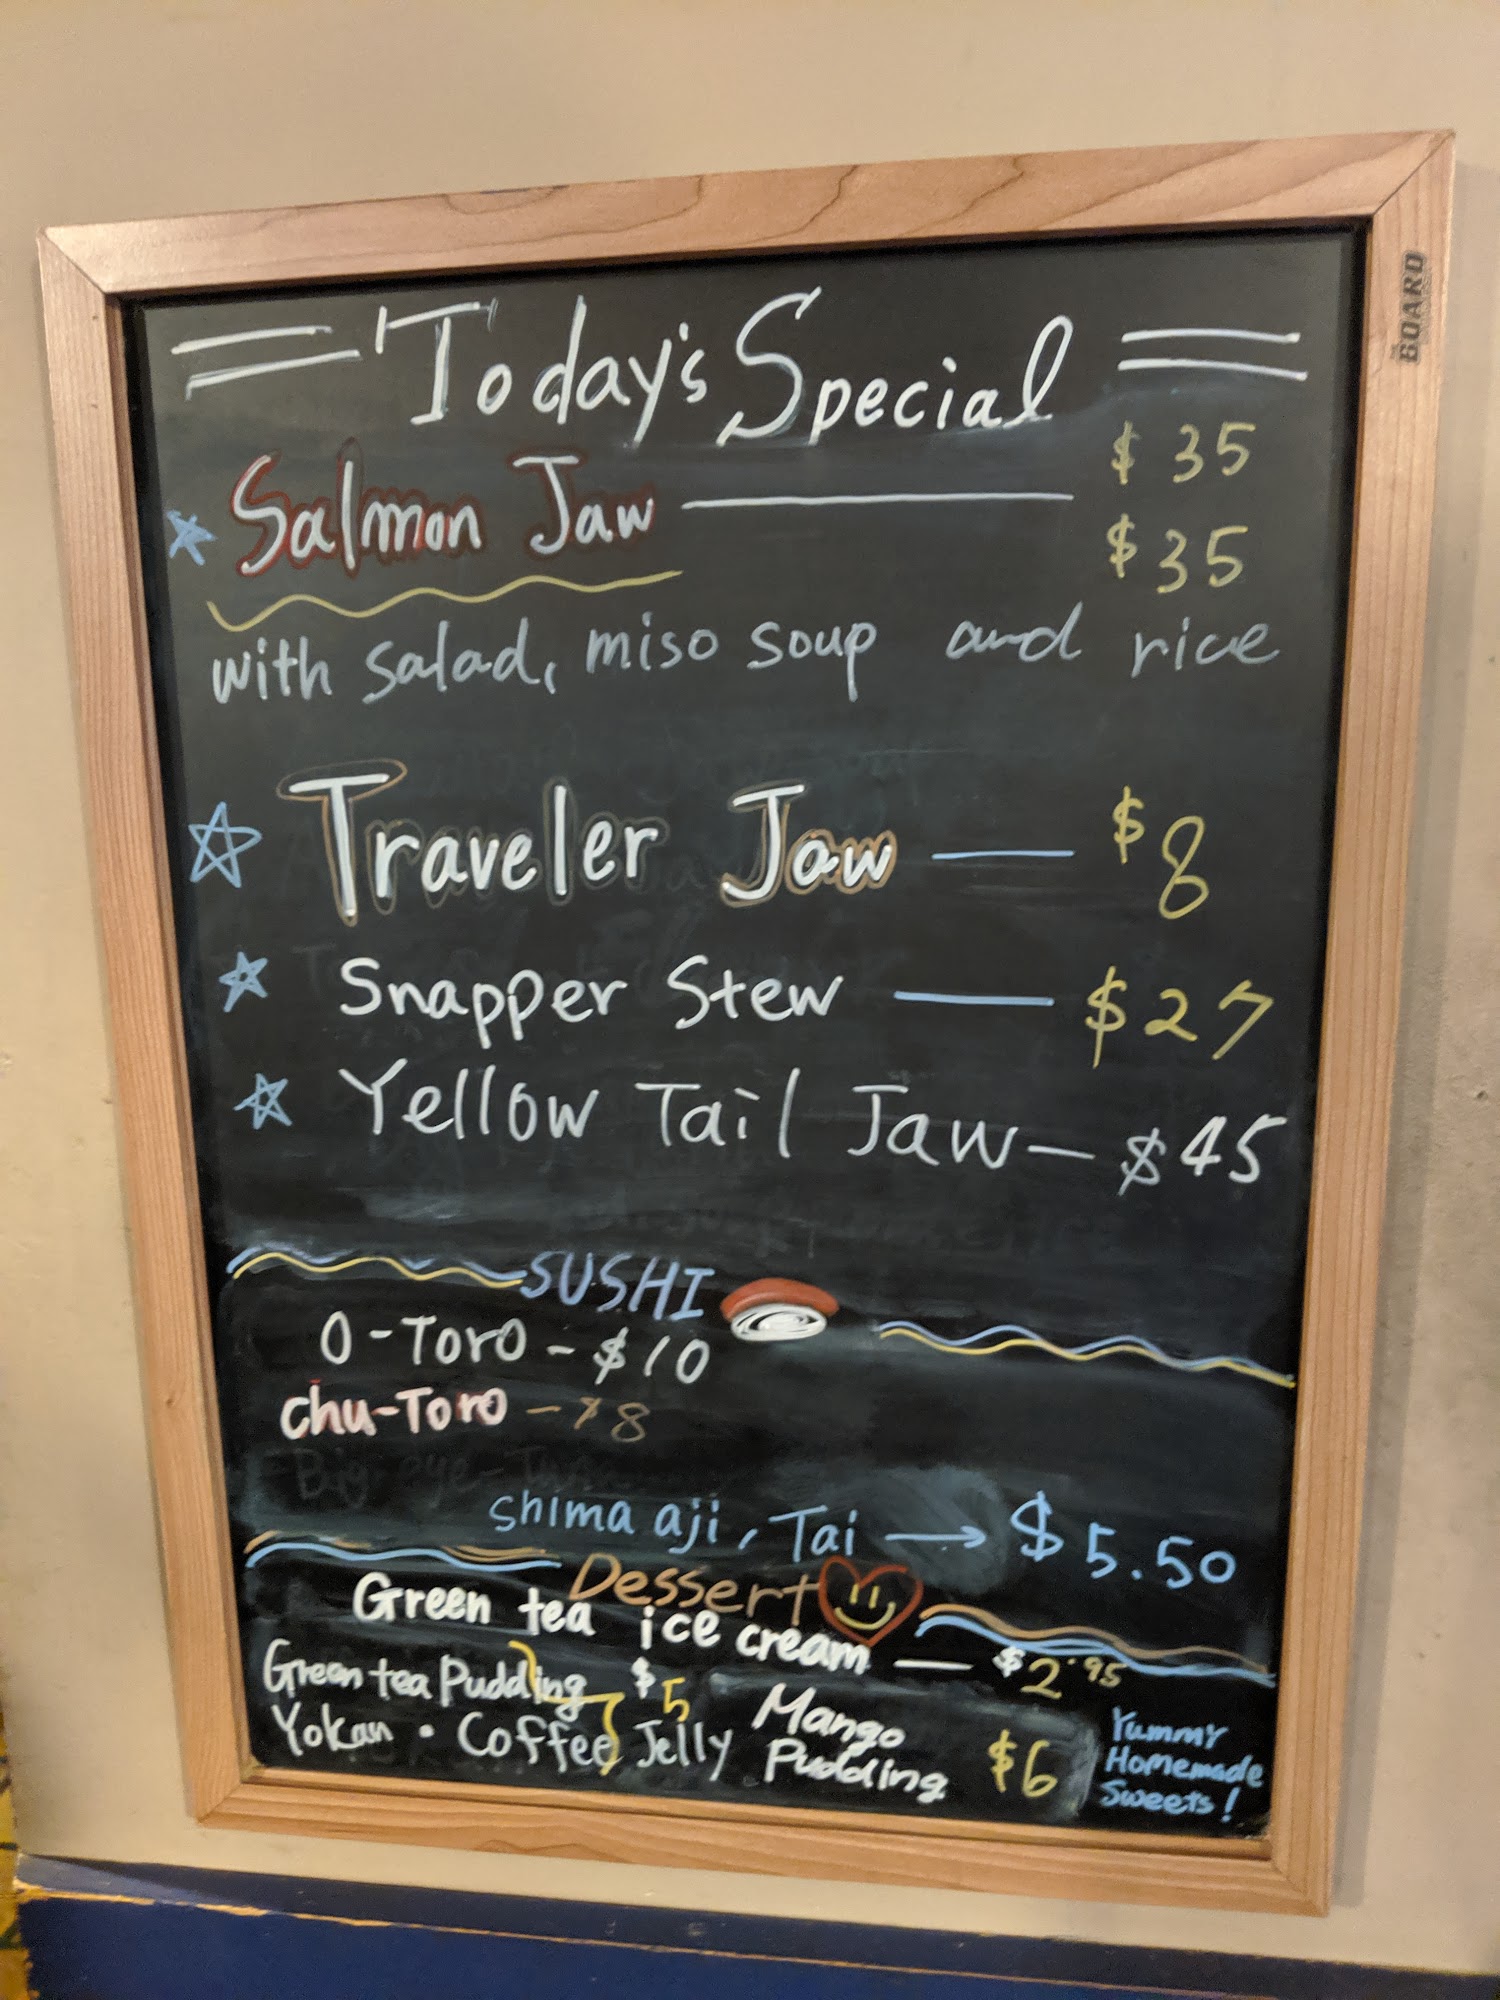 Today's Special
Salmon Jaw $35
$35
with salad, miso soup and rice
Traveler Jaw $8
Snapper Stew $27
Yellow Tail Jaw - $45
SUSHI
O-Toro - $10
chu-Toro - $8
Big eye
shima aji, Tai → $5.50
Dessert
Green tea ice cream — $2.95
Green tea Pudding $5
Yokan · Coffee Jelly
Mango
Pudding $6
Yummy
Homemade
Sweets!
BOARD